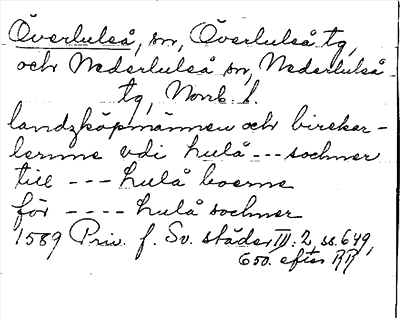 Överluleå, sn, Överluleå tg,
och Nederluleå sn, Nederluleå
tg, Norrb. l.
landzköpmännen och birekar-
lernne vdi hulå --- sochner
till --- hulå boerne
för ---- hulå sochner
1589 Priv. f. Sv. städer III: 2, ss. 649,
650. efter RR